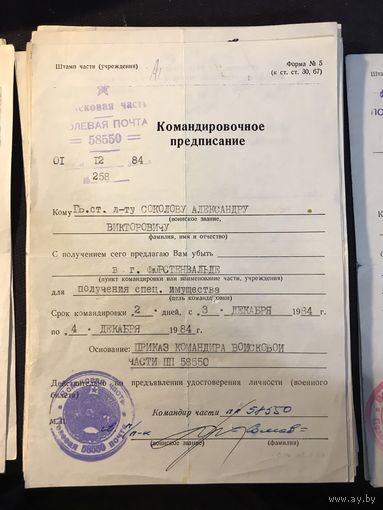 Штамп части (учреждения)
Форма № 5
(к ст. ст. 30, 67)
ПОЛЕВАЯ ПОЧТА
58550
Командировочное
предписание
01 12 84
258
Кому Гв.ст. л-ту СОКОЛОВУ АЛЕКСАНДРУ
(воинское звание,
ВИКТОРОВИЧУ
фамилия, имя и отчество)
С получением сего предлагаю Вам убыть
в г. ФЮРСТЕНВАЛЬДЕ
(пункт командировки или наименование части, учреждения)
для получения спец. имущества
(цель командировки)
Срок командировки 2 дней, с 3 ДЕКАБРЯ 1984 г.
по 4 ДЕКАБРЯ 1984 г.
Основание: ПРИКАЗ КОМАНДИРА ВОЙСКОВОЙ
ЧАСТИ ПП 58550
Действительно по предъявлении удостоверения личности (военного
билета)
Командир части пп 58550
М. П.
п/п-к
(воинское звание) (фамилия)
58550
Штамп
au.ay.by